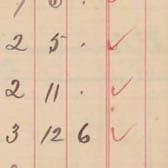 2 5 . ✓
2 11 . ✓
3 12 6 ✓